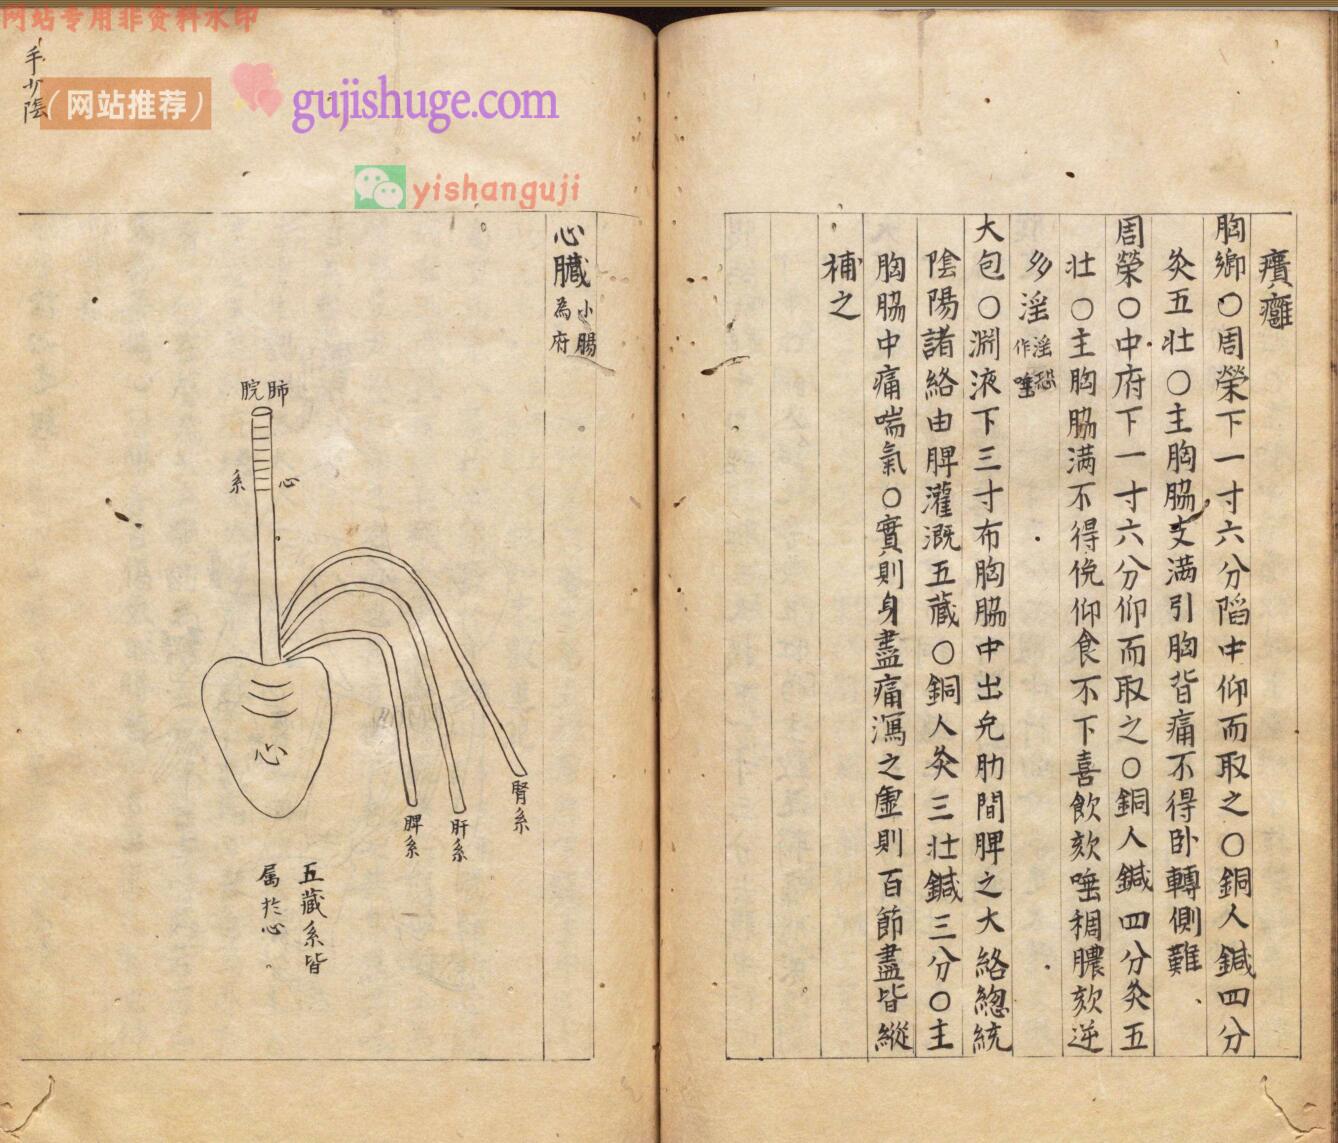 㿉癰
胸鄉〇周榮下一寸六分陷中仰而取之〇銅人鍼四分
灸五壯〇主胸脇支滿引胸背痛不得卧轉側難
周榮〇中府下一寸六分仰而取之〇銅人鍼四分灸五
壯〇主胸脇滿不得俛仰食不下喜飲欬唾稠膿欬逆
多淫
淫恐
作唾
大包〇淵液下三寸布胸脇中出九肋間脾之大絡緫統
陰陽諸絡由脾灌溉五藏〇銅人灸三壯鍼三分〇主
胸脇中痛喘氣〇實則身盡痛瀉之虛則百節盡皆縱
補之
心臟
小腸
為府
手少陰
肺脘
心系
腎系
肝系
脾系
心
五藏系皆
属於心
网站专用非资料水印
(网站推荐)
gujishuge.com
yishanguji